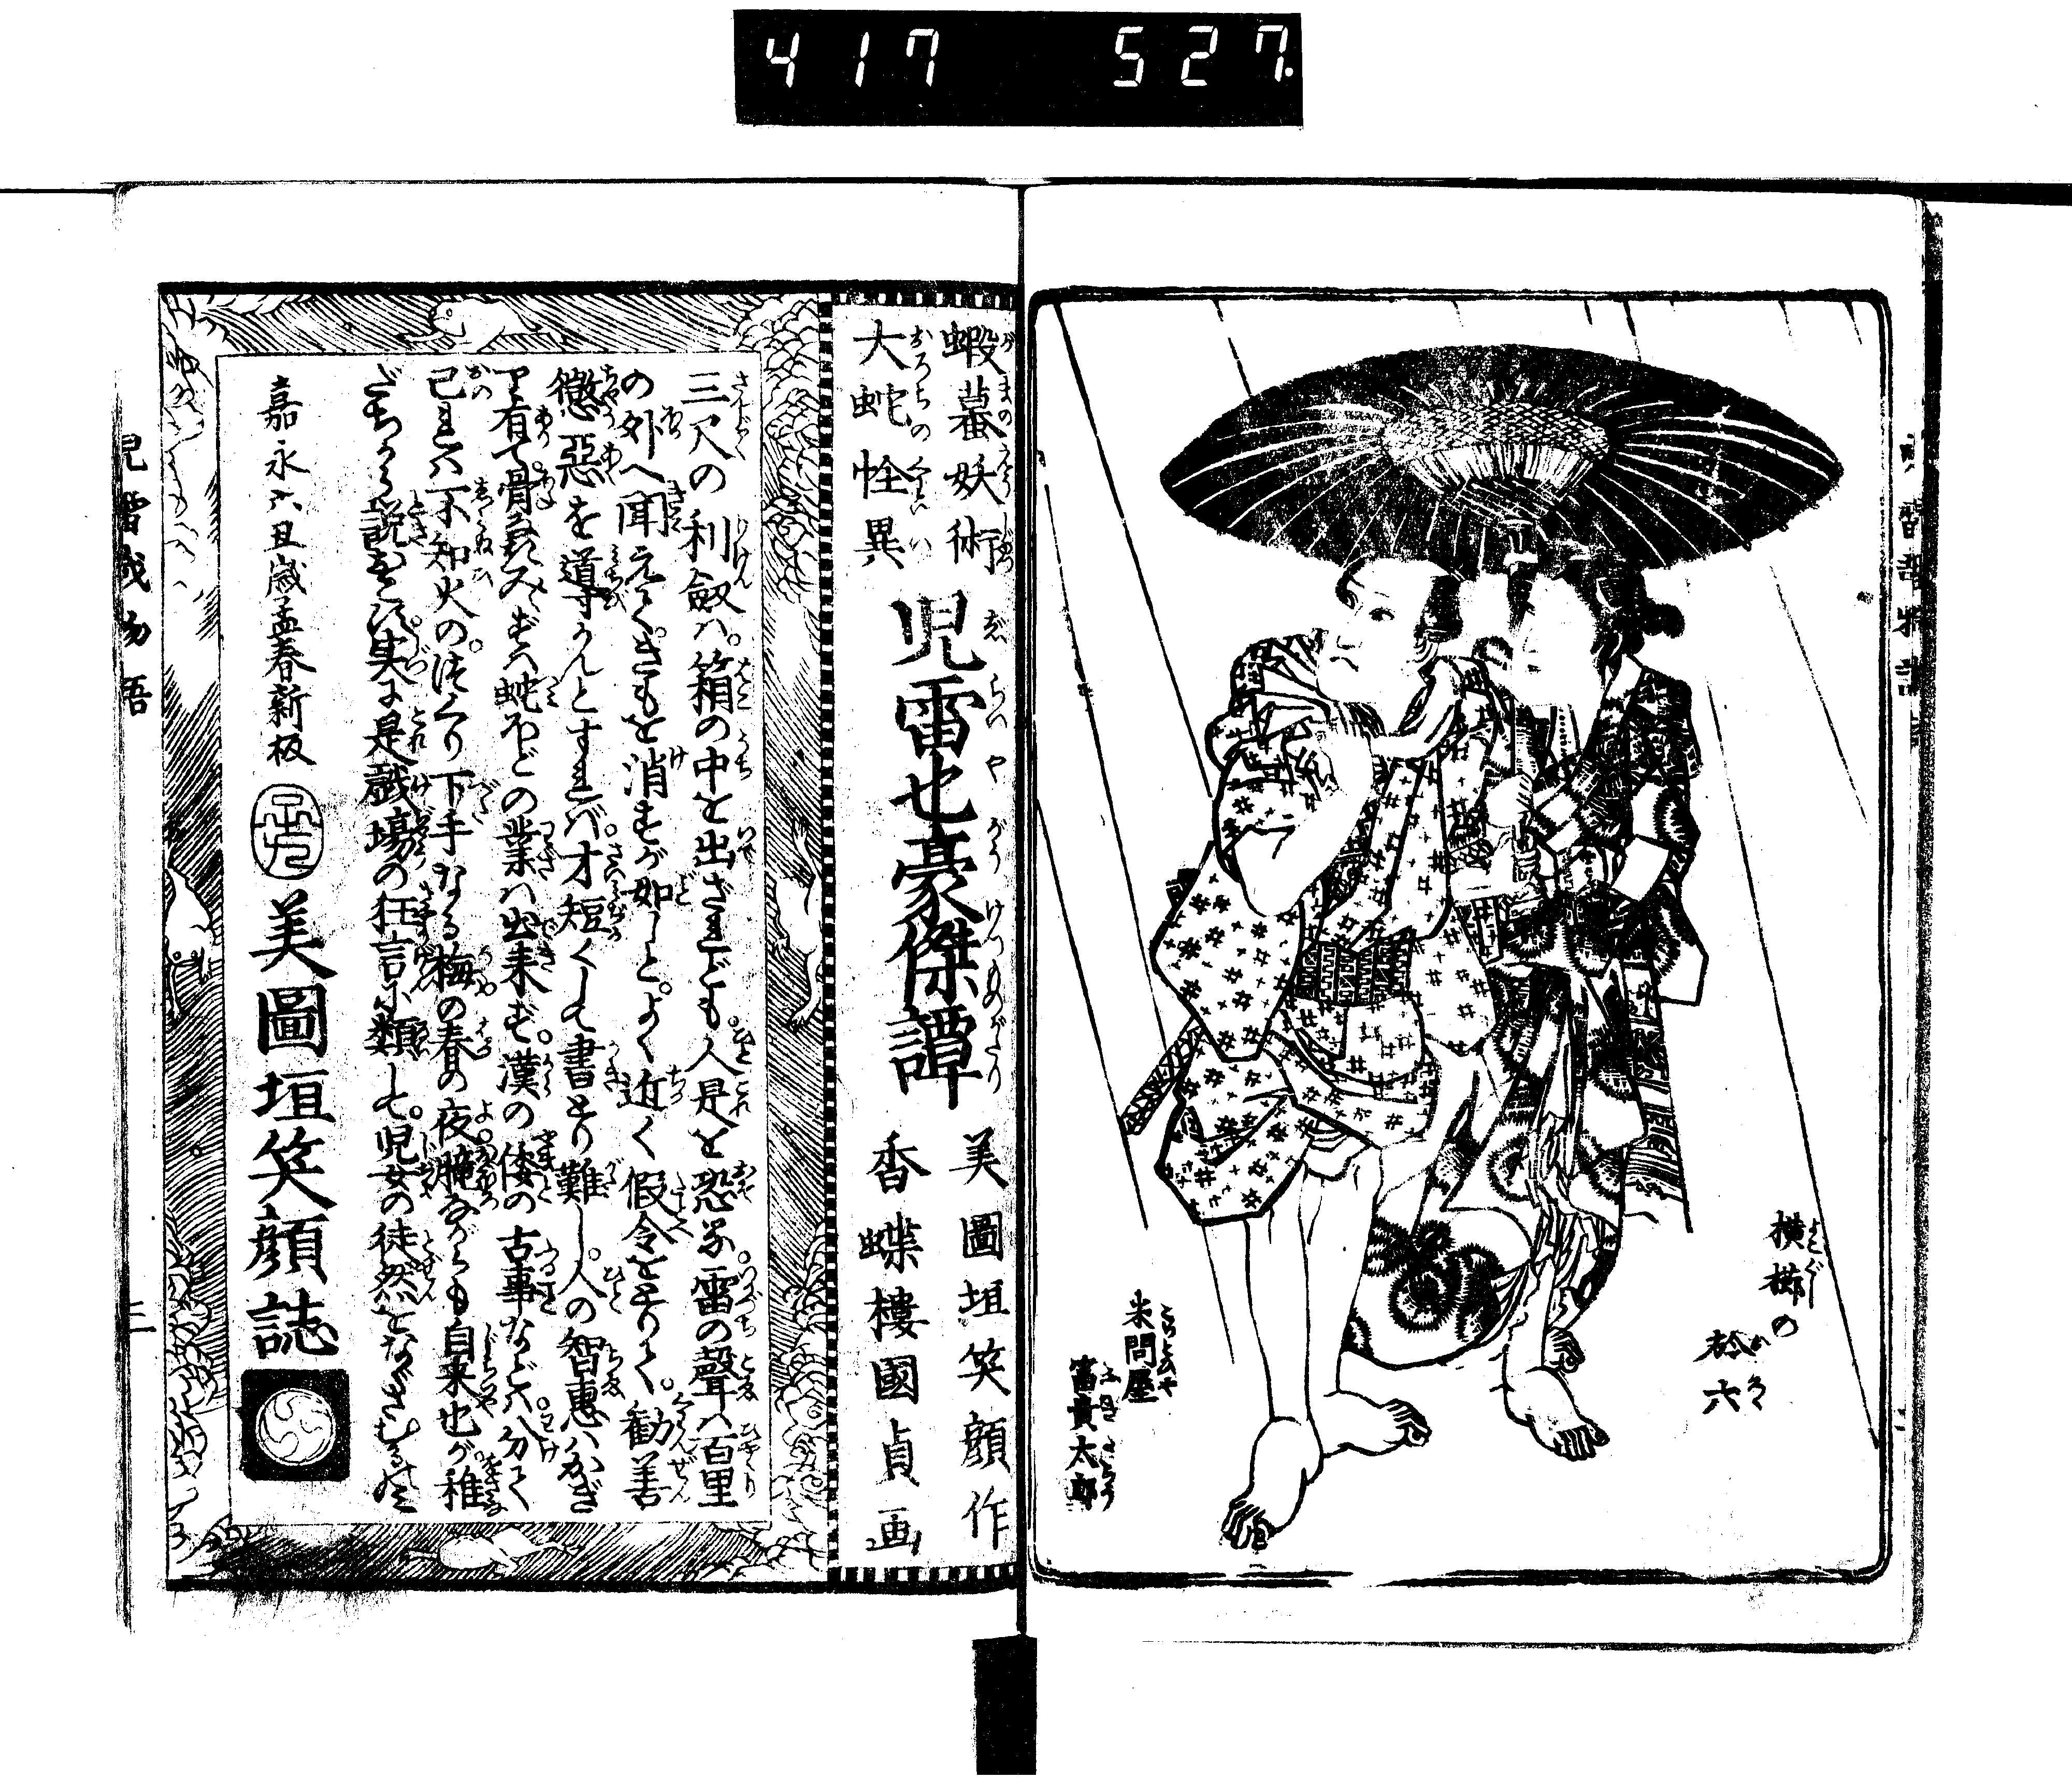 417 527.
横櫛の
於六
米問屋
富貴太郎
蝦蟇妖術
大蛇怪異
児雷也豪傑譚
美圖垣笑顔作
香蝶樓國貞画
三尺の利劔ハ。箱の中を出ざれども。人是を恐る。雷の聲ハ百里
の外へ聞えて。きもを消すが如しと。よく近く假令をとりて。勧善
懲惡を導かんとすれバ。才短くして書とり難し。人の智惠ハかぎ
り有て骨折てみずバ蛇ほどの業ハ出来ず。漢の倭の古事などハ。分て
己れハ不知火の。
下手なる梅の春の夜。朧ながらも自来也が。稚
だちから説おこす。実に是戯場の狂言に類して。児女の徒然をなぐさむるのミ
嘉永六丑歳孟春新板
美圖垣笑顔誌
児雷也物語
二